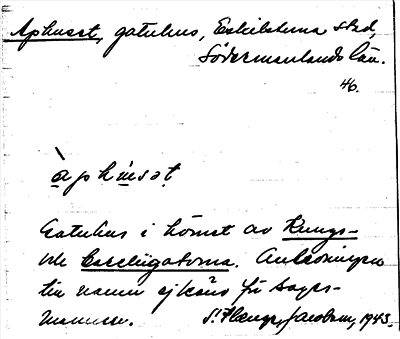 Aphuset, gatuhus, Eskilstuna stad,
Södermanlands län.
46.
àphúsət
Gatuhus i hörnet av Kungs-
och Careliigatorna. Anledningen
till namn ej känd för sages-
mannen. S. Jacobson, 1943.